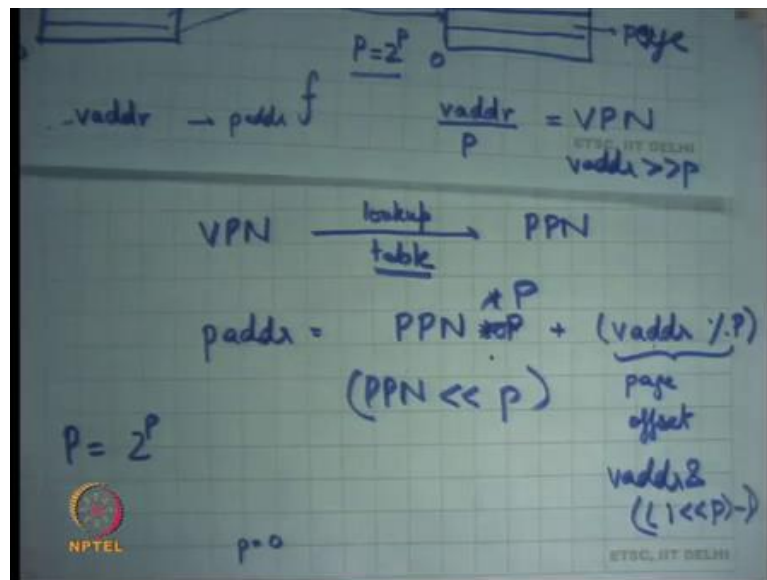 P=2^p 0 → page
vaddr → paddr f vaddr / P = VPN
ETSC, IIT DELHI
vaddr >> p
VPN lookup table → PPN
paddr = PPN * P + (vaddr %P)
(PPN << p) page
offset
P = 2^p
vaddr &
((1<<p)-)
NPTEL
p=0
ETSC, IIT DELHI